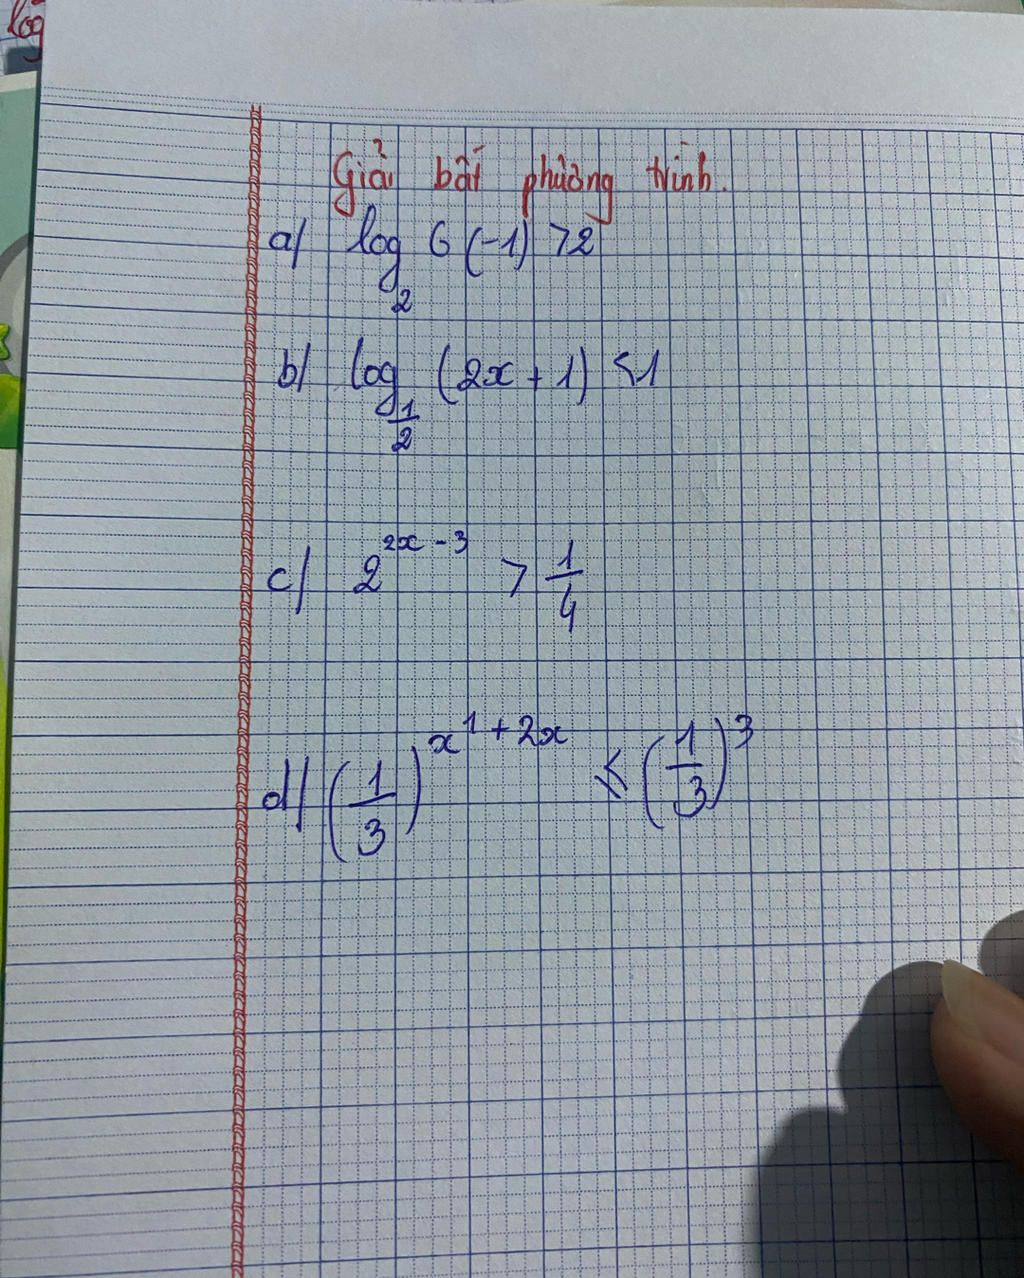 log
Giải bất phương trình.
a/ log₂ 6 (-1) > 2
b/ log_{1/2} (2x + 1) < 1
c/ 2^{2x - 3} > 1/4
d/ (1/3)^{x^1 + 2x} ≤ (1/3)^3